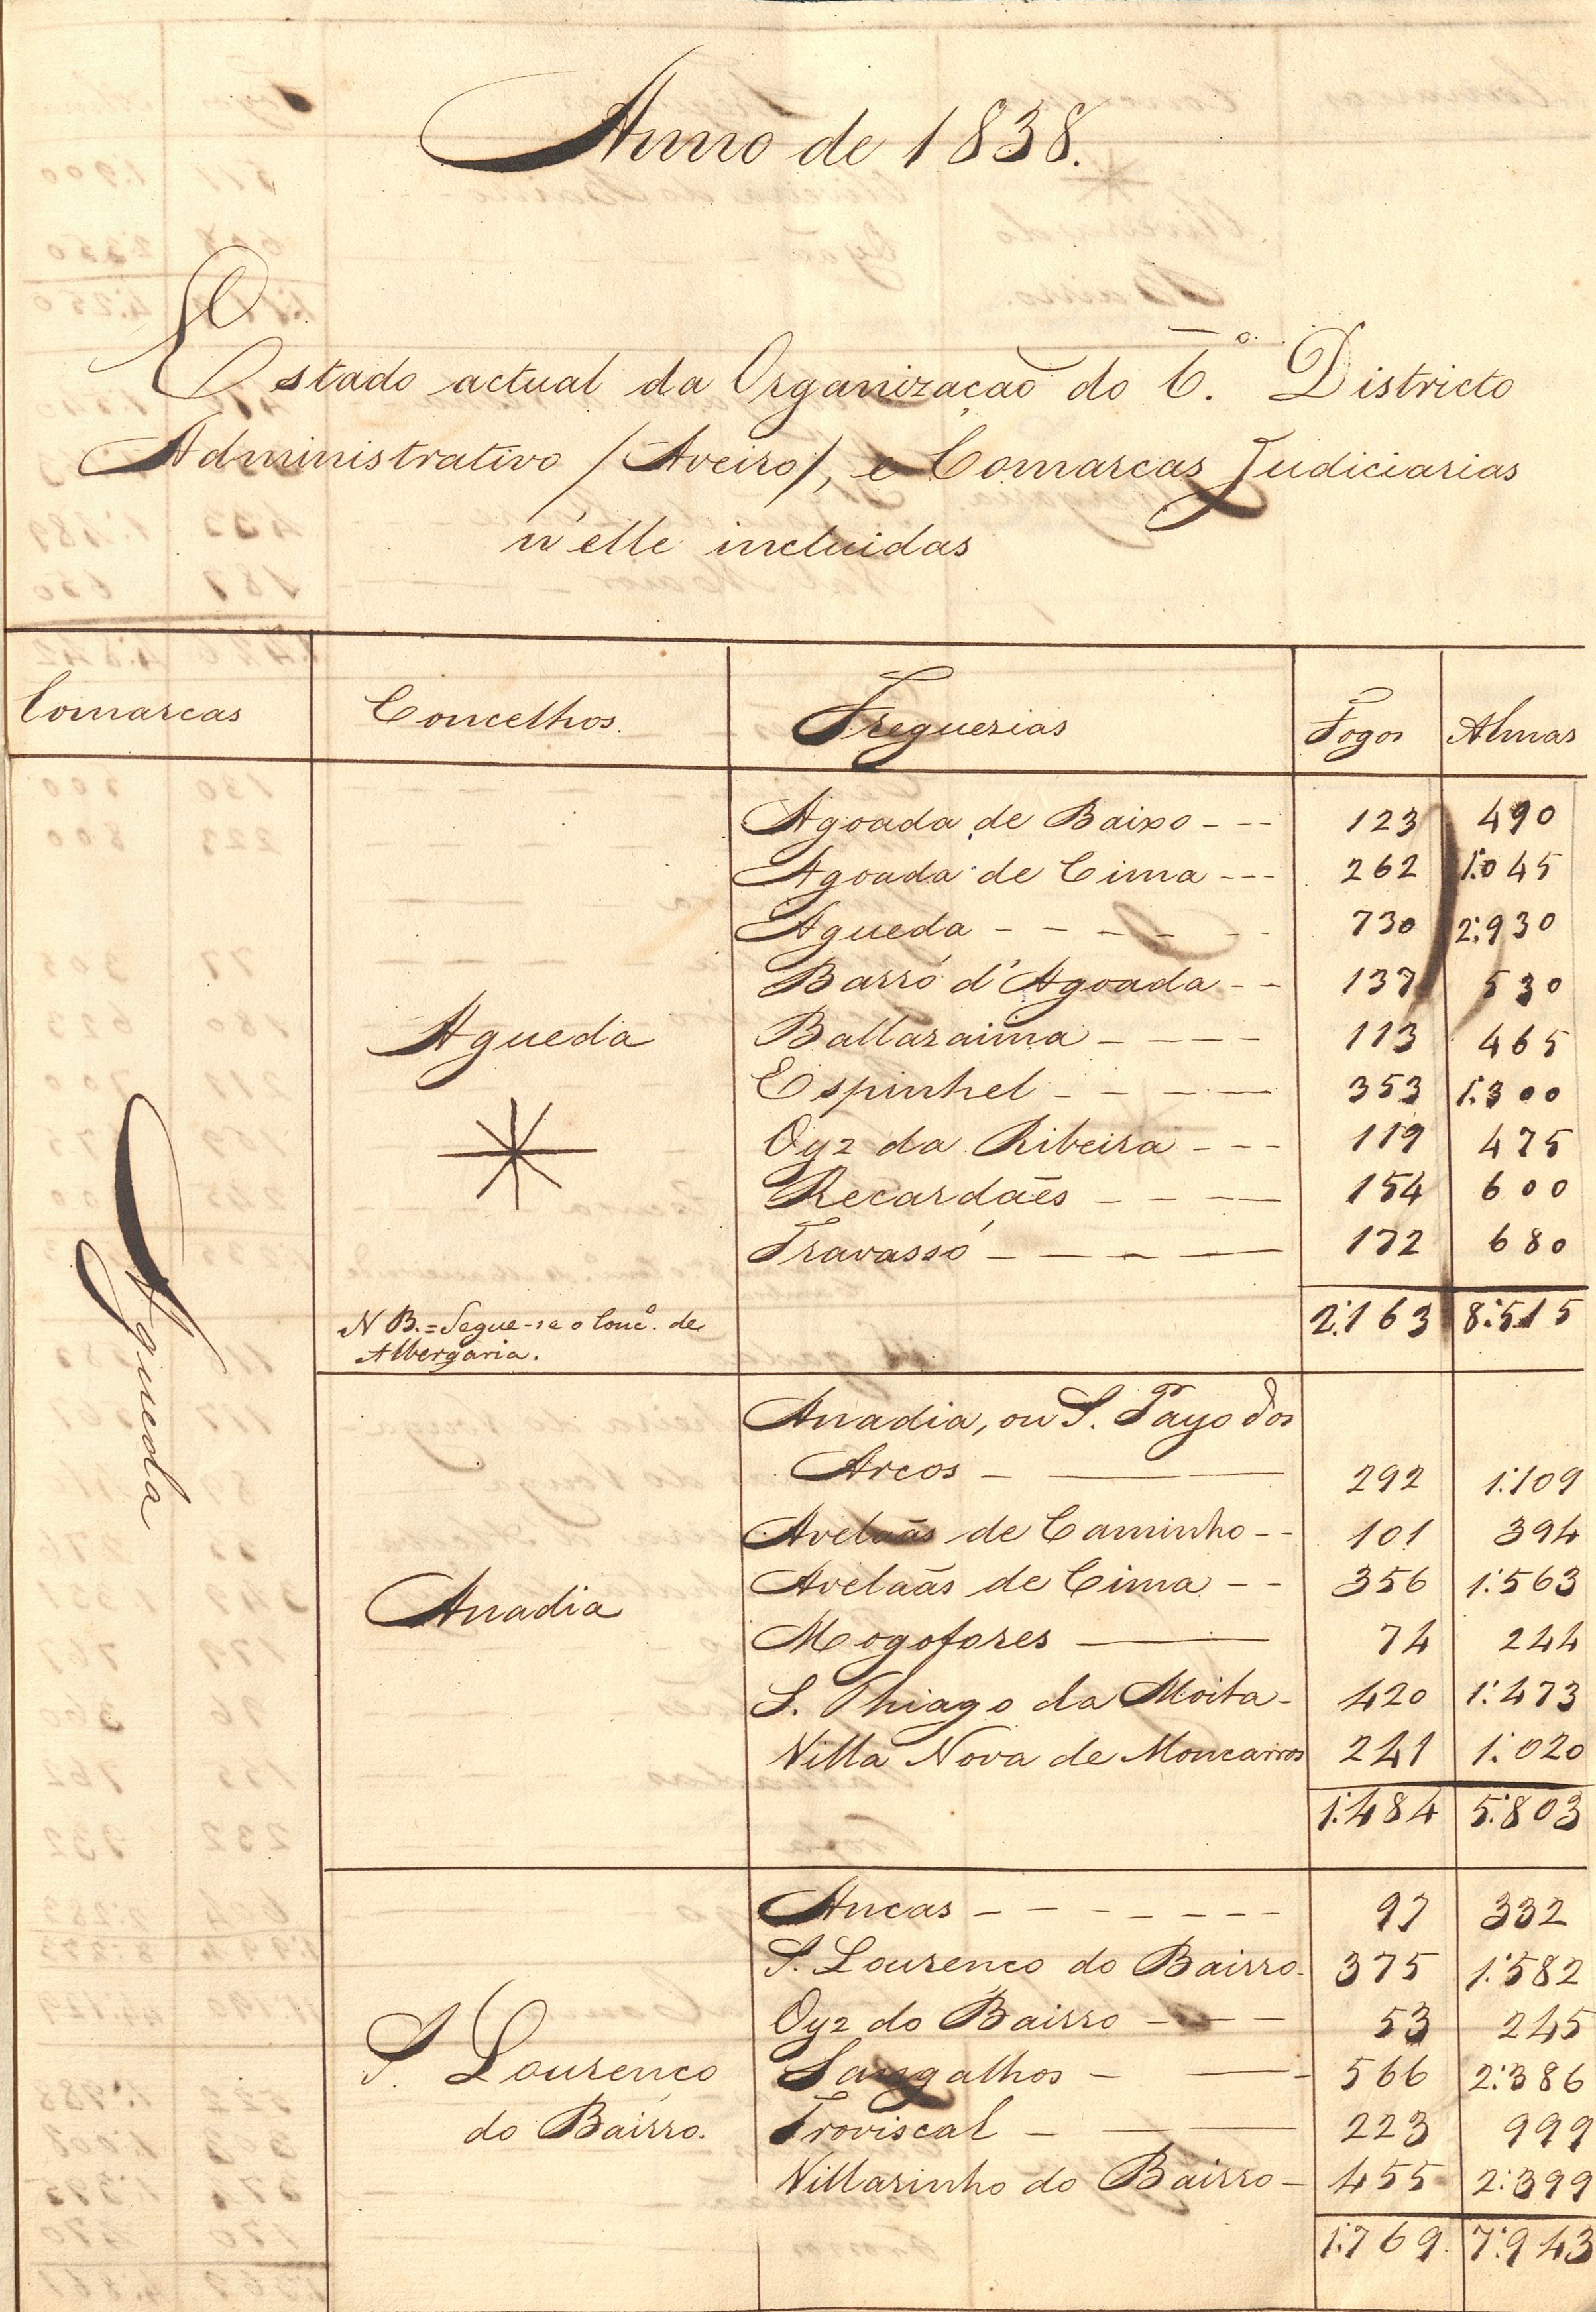 Anno de 1838.
Estado actual da Organização do 6.º Districto
Administrativo /Aveiro/, e Comarcas Judiciarias
n'elle incluidas
Comarcas Concelhos. Freguerias Fogos Almas
Agueda
Agueda
N B. = Segue-se o Conc.º de
Albergaria.
Agoada de Baixo --- 123 490
Agoada de Cima --- 262 1:045
Agueda - - - - - - 730 2:930
Barró d'Agoada -- 137 530
Ballazaima ---- 113 465
Espinhel - - - - 353 1:300
Oyz da Ribeira --- 119 475
Recardães - - - - 154 600
Travassó - - - - 172 680
2:163 8:515
Anadia
Anadia, ou S. Payo dos
Arcos - - - 292 1:109
Avelaãs de Caminho -- 101 394
Avelaãs de Cima -- 356 1:563
Mogofores — 74 244
S. Thiago da Moita - 420 1:473
Villa Nova de Moncarros 241 1:020
1:484 5:803
S. Lourenço
do Bairro.
Ancas - - - - - - - 97 332
S. Lourenço do Bairro. 375 1:582
Oyz do Bairro - - - 53 245
Sangalhos - — 566 2:386
Troviscal - - — 223 999
Villarinho do Bairro - 455 2:399
1:769. 7:943